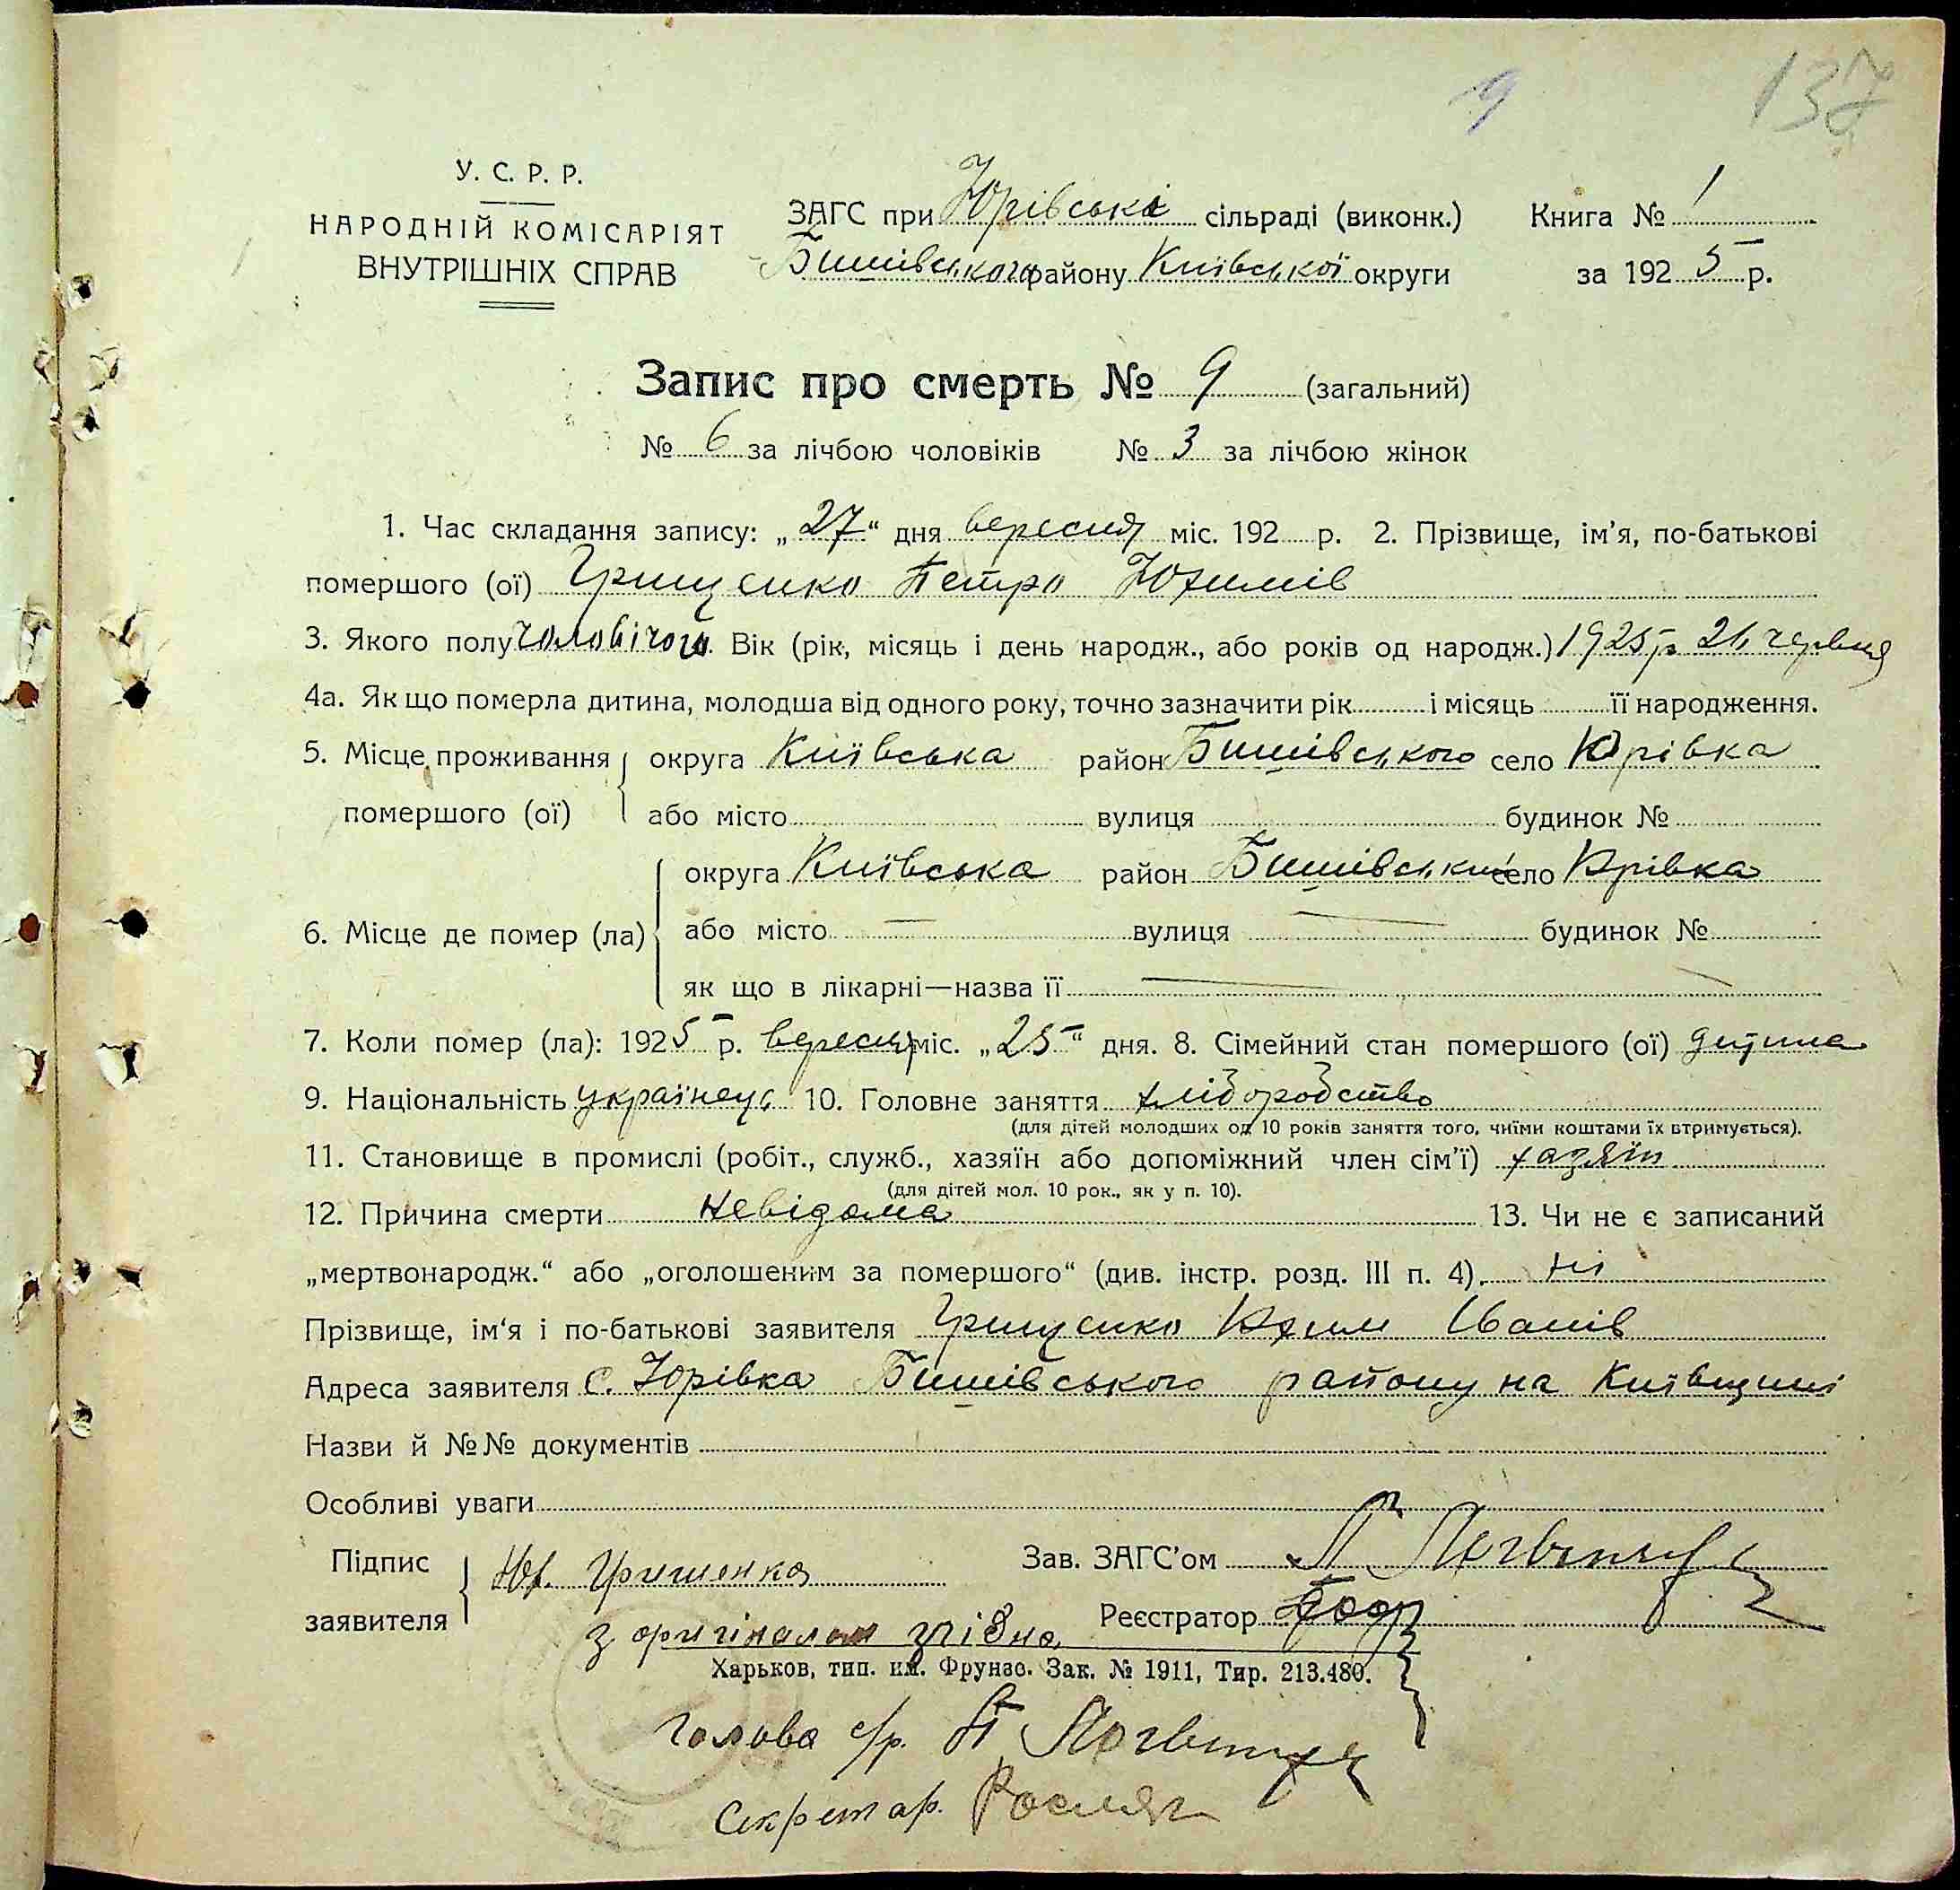 9
137
У. С. Р. Р.
НАРОДНІЙ КОМІСАРІЯТ
ВНУТРІШНІХ СПРАВ
ЗАГС при Юрівські сільраді (виконк.)
Бишівського району Київської округи
Книга № 1
за 1925 р.
Запис про смерть № 9 (загальний)
№ 6 за лічбою чоловіків № 3 за лічбою жінок
1. Час складання запису: „27“ дня вересня міс. 192 р. 2. Прізвище, ім’я, по-батькові
помершого (ої) Грищенко Петро Юхимів
3. Якого полу чоловічого. Вік (рік, місяць і день народж., або років од народж.) 1925 р. 21 червня
4а. Як що померла дитина, молодша від одного року, точно зазначити рік і місяць її народження.
5. Місце проживання округа Київська район Бишівського село Юрівка
помершого (ої) або місто вулиця будинок №
округа Київська район Бишівський село Юрівка
6. Місце де помер (ла) або місто — вулиця — будинок №
як що в лікарні—назва її —
7. Коли помер (ла): 1925 р. вересня міс. „25“ дня. 8. Сімейний стан помершого (ої) дитина
9. Національність українець 10. Головне заняття хліборобство
(для дітей молодших од 10 років заняття того, чиїми коштами їх втримується).
11. Становище в промислі (робіт., служб., хазяїн або допоміжний член сім’ї) хазяїн
(для дітей мол. 10 рок., як у п. 10).
12. Причина смерти невідома 13. Чи не є записаний
„мертвонародж.“ або „оголошеним за помершого“ (див. інстр. розд. III п. 4). ні
Прізвище, ім‘я і по-батькові заявителя Грищенко Юхим Іванів
Адреса заявителя с. Юрівка Бишівського району на Київщині
Назви й №№ документів
Особливі уваги
Підпис заявителя Юх. Грищенко
Зав. ЗАГС’ом П Логвин
Реєстратор
з оригіналом згідно
Харьков, тип. им. Фрунзе. Зак. № 1911, Тир. 213.480.
Голова с/р. П Логвин
Секретар.